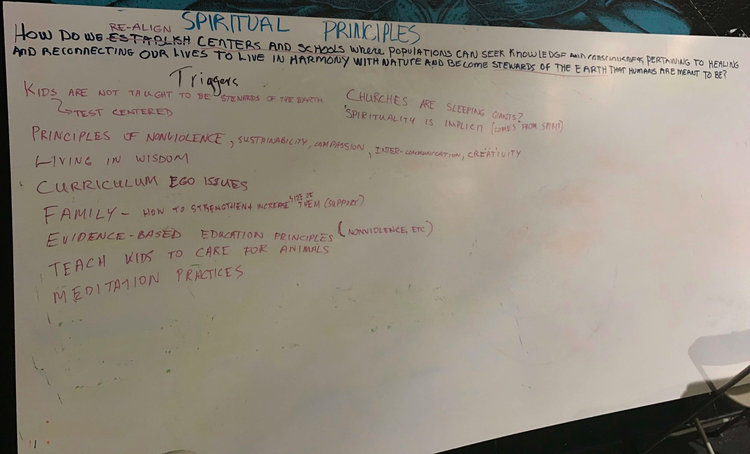 RE-ALIGN SPIRITUAL PRINCIPLES
HOW DO WE ESTABLISH CENTERS AND SCHOOLS WHERE POPULATIONS CAN SEEK KNOWLEDGE AND CONSCIOUSNESS PERTAINING TO HEALING
AND RECONNECTING OUR LIVES TO LIVE IN HARMONY WITH NATURE AND BECOME STEWARDS OF THE EARTH THAT HUMANS ARE MEANT TO BE?
Triggers
KIDS ARE NOT TAUGHT TO BE STEWARDS OF THE EARTH
TEST CENTERED
CHURCHES ARE SLEEPING GIANTS?
SPIRITUALITY IS IMPLICIT (COMES FROM SPIRIT)
PRINCIPLES OF NONVIOLENCE, SUSTAINABILITY, COMPASSION, INTER-COMMUNICATION, CREATIVITY
LIVING IN WISDOM
CURRICULUM EGO ISSUES
FAMILY - HOW TO STRENGTHEN & INCREASE SIZE OF THEM (SUPPORT)
EVIDENCE-BASED EDUCATION PRINCIPLES (NONVIOLENCE, ETC)
TEACH KIDS TO CARE FOR ANIMALS
MEDITATION PRACTICES